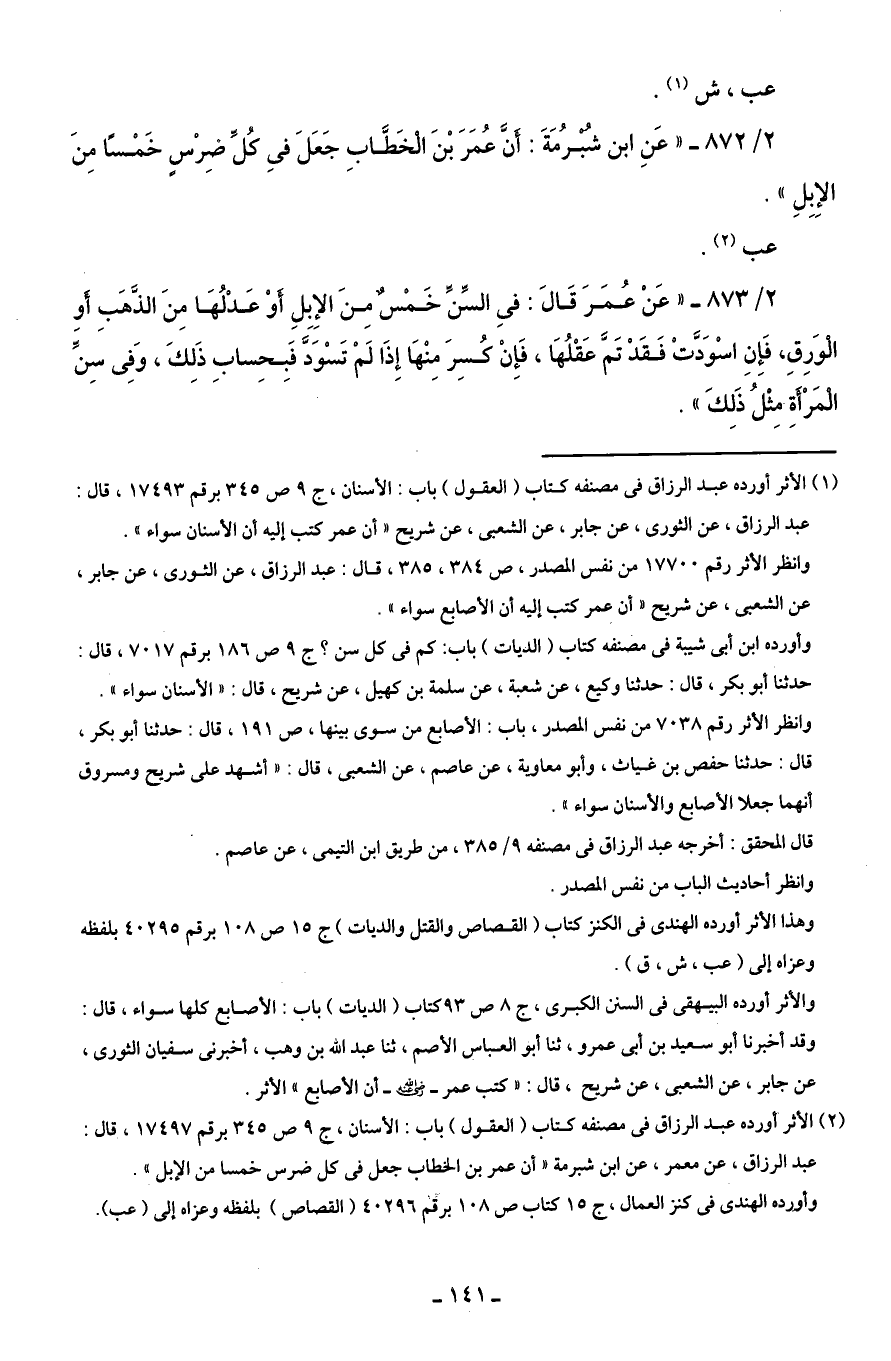 عب ، ش (١) .
٢/ ٨٧٢ ـ « عَنِ ابن شُبْرمَةَ : أَنَّ عُمَرَ بْنَ الْخَطَّابِ جَعَلَ فى كُلِّ ضِرْسٍ خَمْسًا مِنَ
الإِبِلِ » .
عب (٢) .
٢/ ٨٧٣ ـ « عَنْ عُمَرَ قَالَ : فى السنِّ خَمْسٌ مِنَ الإِبِلِ أَوْ عَدْلُهَا مِنَ الذَّهَبِ أَوِ
الْوَرِقِ، فَإِنِ اسْوَدَّتْ فَقَدْ تَمَّ عَقْلُهَا ، فَإِنْ كُسِرَ مِنْهَا إِذَا لَمْ تَسْوَدَّ فَبِحِسابِ ذَلِكَ ، وَفِى سِنِّ
الْمَرْأَةِ مِثْلُ ذَلِكَ » .
(١) الأثر أورده عبد الرزاق فى مصنفه كتاب ( العقول ) باب : الأسنان ، ج ٩ ص ٣٤٥ برقم ١٧٤٩٣ ، قال :
عبد الرزاق ، عن الثورى ، عن جابر ، عن الشعبى ، عن شريح « أن عمر كتب إليه أن الأسنان سواء » .
وانظر الأثر رقم ١٧٧٠٠ من نفس المصدر ، ص ٣٨٤ ، ٣٨٥ ، قال : عبد الرزاق ، عن الثورى ، عن جابر ،
عن الشعبى ، عن شريح « أن عمر كتب إليه أن الأصابع سواء » .
وأورده ابن أبى شيبة فى مصنفه كتاب ( الديات ) باب: كم فى كل سن ؟ ج ٩ ص ١٨٦ برقم ٧٠١٧ ، قال :
حدثنا أبو بكر ، قال : حدثنا وكيع ، عن شعبة ، عن سلمة بن كهيل ، عن شريح ، قال : « الأسنان سواء » .
وانظر الأثر رقم ٧٠٣٨ من نفس المصدر ، باب : الأصابع من سوى بينها ، ص ١٩١ ، قال : حدثنا أبو بكر ،
قال : حدثنا حفص بن غياث ، وأبو معاوية ، عن عاصم ، عن الشعبى ، قال : « أشهد على شريح ومسروق
أنهما جعلا الأصابع والأسنان سواء » .
قال المحقق : أخرجه عبد الرزاق فى مصنفه ٩/ ٣٨٥ ، من طريق ابن التيمى ، عن عاصم .
وانظر أحاديث الباب من نفس المصدر .
وهذا الأثر أورده الهندى فى الكنز كتاب ( القصاص والقتل والديات ) ج ١٥ ص ١٠٨ برقم ٤٠٢٩٥ بلفظه
وعزاه إلى ( عب ، ش ، ق ) .
والأثر أورده البيهقى فى السنن الكبرى ، ج ٨ ص ٩٣ كتاب ( الديات ) باب : الأصابع كلها سواء ، قال :
وقد أخبرنا أبو سعيد بن أبى عمرو ، ثنا أبو العباس الأصم ، ثنا عبد الله بن وهب ، أخبرنى سفيان الثورى ،
عن جابر ، عن الشعبى ، عن شريح ، قال : « كتب عمر ـ رضي الله عنه ـ أن الأصابع » الأثر .
(٢) الأثر أورده عبد الرزاق فى مصنفه كتاب ( العقول ) باب : الأسنان ، ج ٩ ص ٣٤٥ برقم ١٧٤٩٧ ، قال :
عبد الرزاق ، عن معمر ، عن ابن شبرمة « أن عمر بن الخطاب جعل فى كل ضرس خمسا من الإبل » .
وأورده الهندى فى كنز العمال ، ج ١٥ كتاب ص ١٠٨ برقم ٤٠٢٩٦ ( القصاص ) بلفظه وعزاه إلى ( عب).
ـ ١٤١ ـ